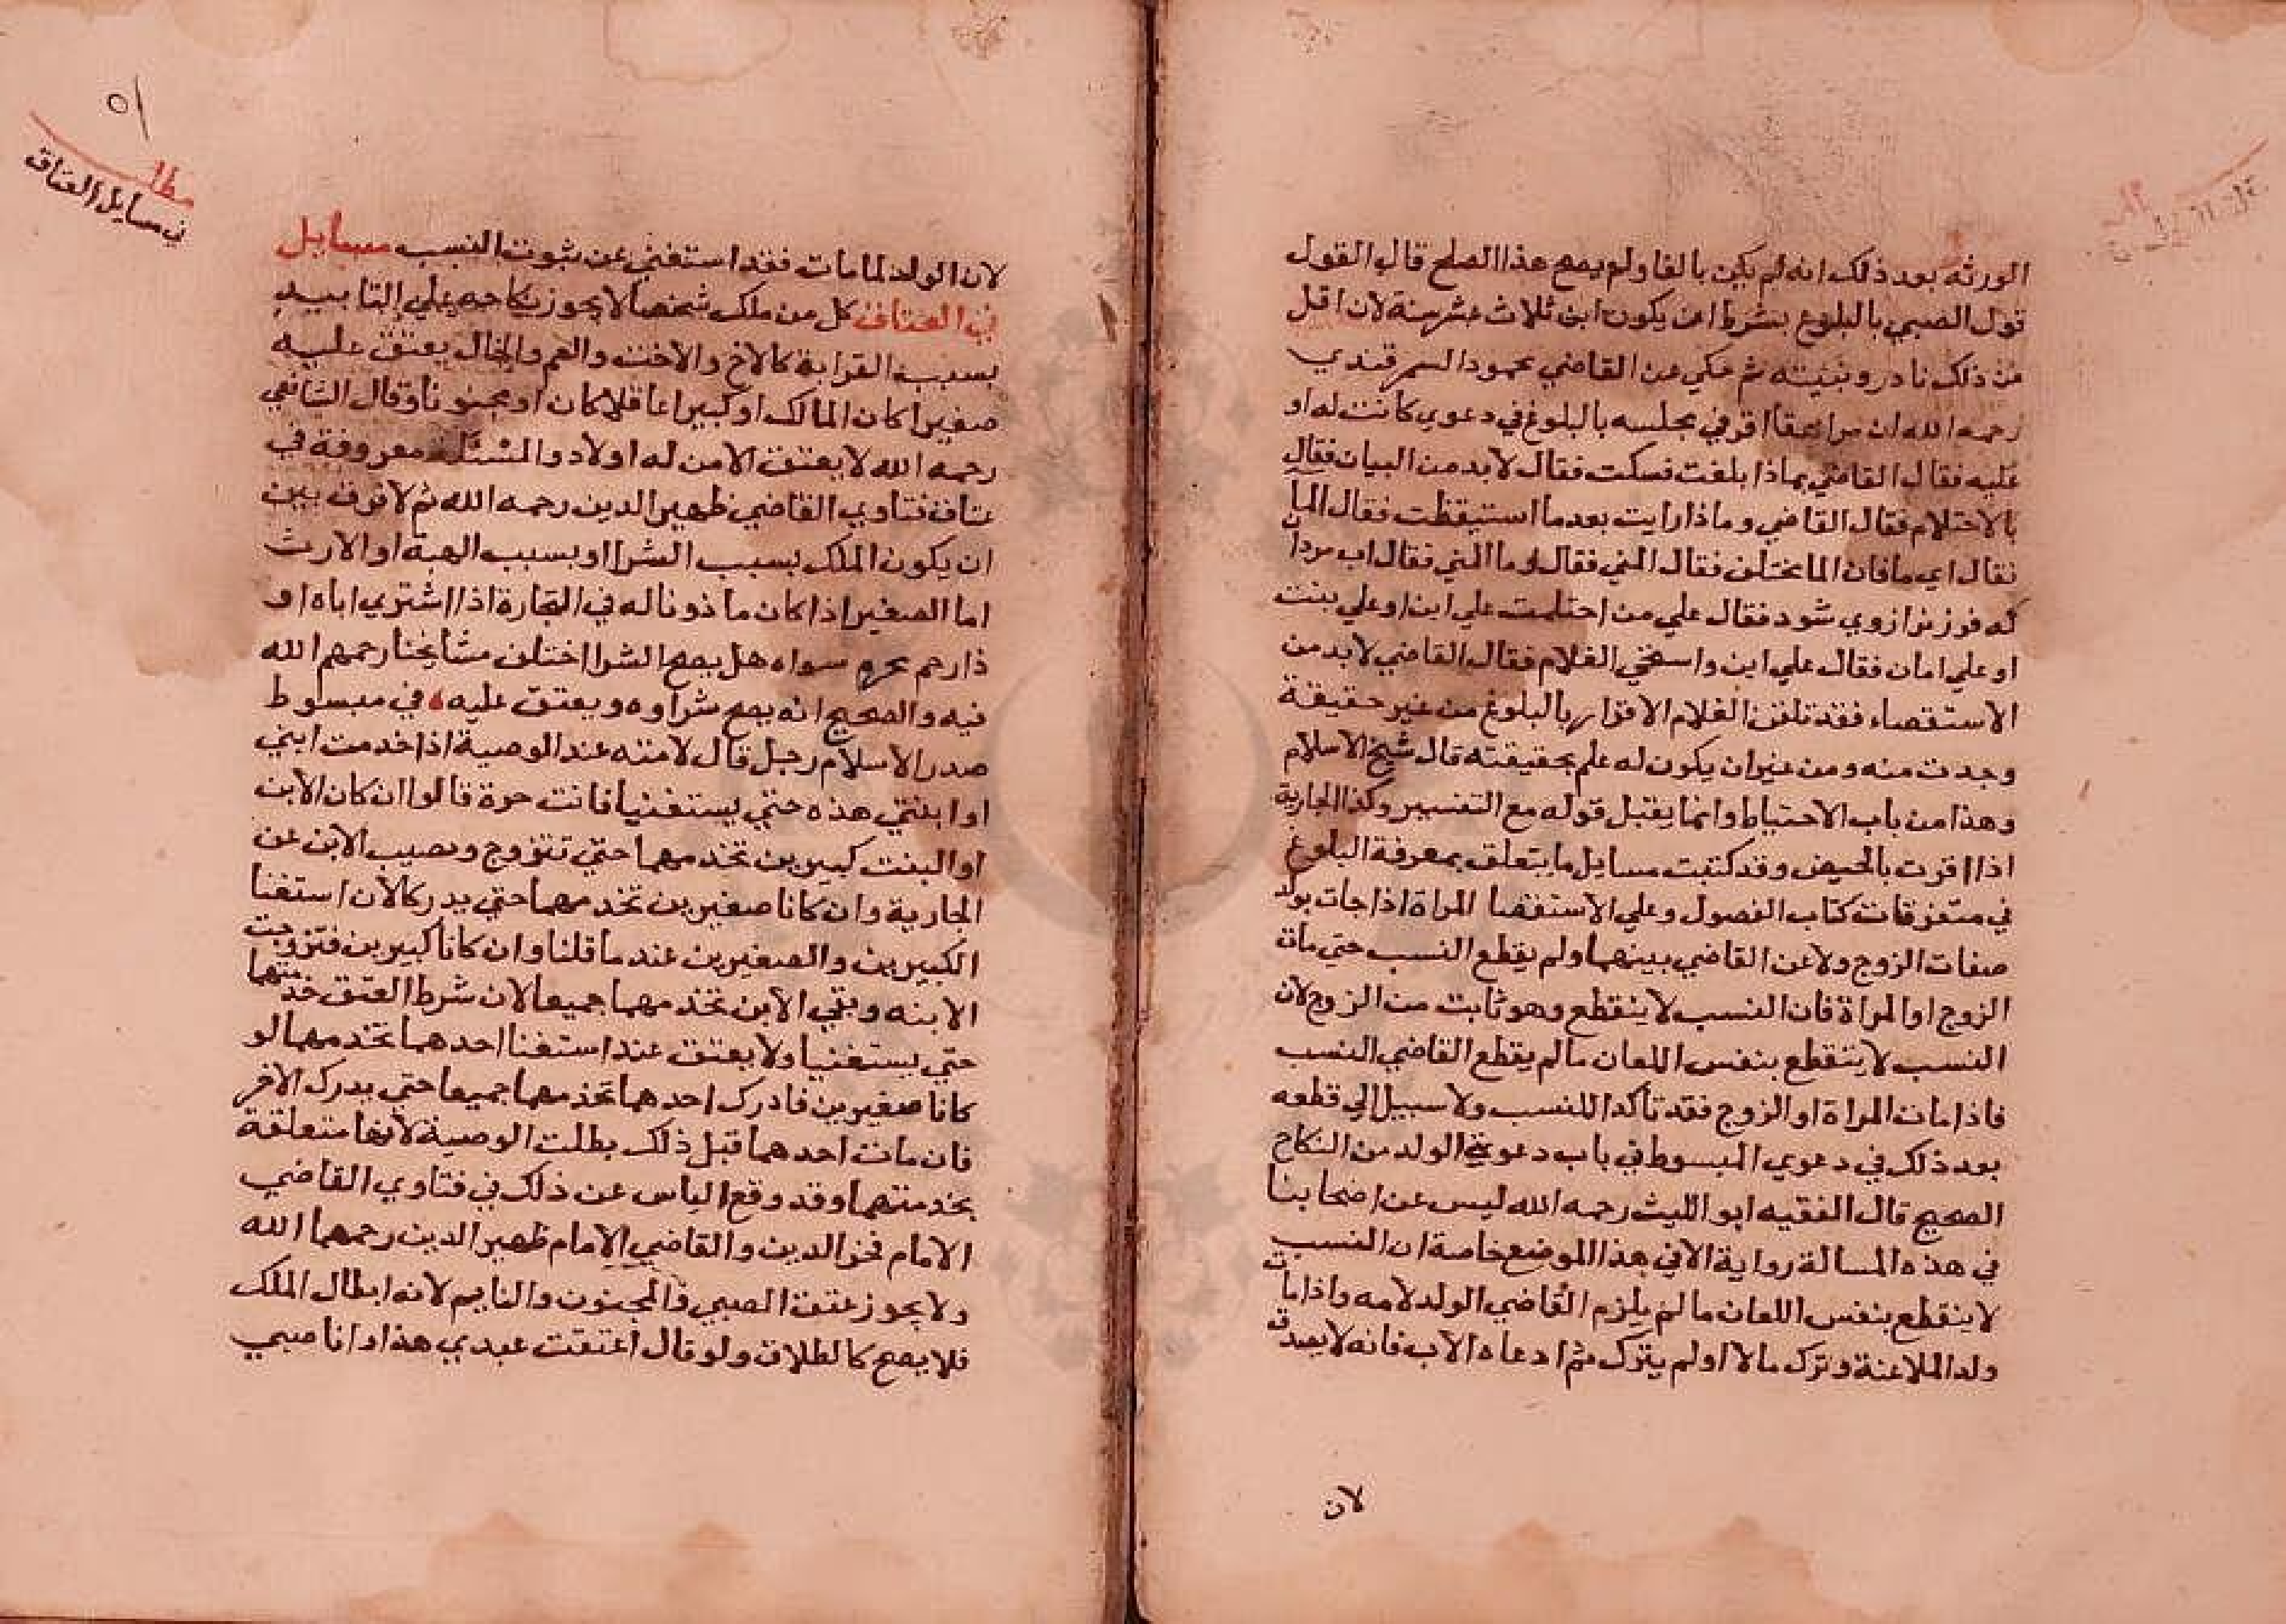 الورثة بعد ذلك انه لم يكن بالغا ولم يصح هذا الصلح قال القول
قول الصبي بالبلوغ بشرط ان يكون ابن ثلاث عشر سنة لان اقل
من ذلك نادر وبنيته ثم حكي عن القاضي محمود السمرقندي
رحمه الله ان مراهقا اقر في مجلسه بالبلوغ في دعوي كانت له او
عليه فقال القاضي بماذا بلغت فسكت فقال لا بد من البيان فقال
بالاحتلام فقال القاضي وماذا رايت بعد ما استيقظت فقال الما
فقال اي ما فان الما يختلف فقال المني فقال وما المني فقال اب مردان
كه فرزند ازوي شود فقال علي من احتلمت علي ابن او علي بنت
او علي امان فقال علي ابن واستحي الغلام فقال القاضي لا بد من
الاستقصاء فقد تلقن الغلام الاقرار بالبلوغ من غير حقيقة
وجدت منه ومن غير ان يكون له علم بحقيقته قال شيخ الاسلام
وهذا من باب الاحتياط وانما يقبل قوله مع التفسير وكذا الجارية
اذا اقرت بالحيض وقد كتبت مسايل ما يتعلق بمعرفة البلوغ
في متفرقات كتاب الفصول وعلي الاستقصا المراة اذا جات بولد
الزوج ولاعن القاضي بينهما ولم يقطع النسب حتى مات
الزوج او المراة فان النسب لا ينقطع وهو ثابت من الزوج لان
النسب لا ينقطع بنفس اللعان ما لم يقطع القاضي النسب
فاذا مات المراة او الزوج فقد تأكد النسب ولا سبيل الي قطعه
بعد ذلك في دعوي المبسوط في باب دعوي الولد من النكاح
الصحيح قال الفقيه ابو الليث رحمه الله ليس عن اصحابنا
في هذه المسالة رواية الا في هذا الموضع خاصة ان النسب
لا ينقطع بنفس اللعان ما لم يلزم القاضي الولد لامه واذا مات
ولد الملاعنة وترك مالا او لم يترك ثم ادعاه الاب فانه لا يصدق
لان
٥١
مطلب
في مسايل العتاق
لان الولد لما مات فقد استغني عن ثبوت النسب مسايل
في العتاق كل من ملك شخصا لا يجوز نكاحه علي التابيد
بسبب القرابة كالاخ والاخت والعم والخال يعتق عليه
صغيرا كان المالك او كبيرا عاقلا كان او مجنونا وقال الشافعي
رحمه الله لا يعتق الا من له اولاد والمسئلة معروفة في
عتاق فتاوي القاضي ظهير الدين رحمه الله ثم لا فرق بين
ان يكون الملك بسبب الشرا او بسبب الهبة او الارث
اما الصغير اذا كان ماذونا له في التجارة اذا اشتري اباه او
ذا رحم محرم سواه هل يصح الشرا اختلف مشايخنا رحمهم الله
فيه والصحيح انه يصح شراوه ويعتق عليه ه في مبسوط
صدر الاسلام رجل قال لامته عند الوصية اذا خدمت ابني
او ابنتي هذه حتي يستغنيا فانت حرة قالوا ان كان الابن
او البنت كبيرين تخدمهما حتي تتزوج ويصيب الابن ثمن
الجارية وان كانا صغيرين تخدمهما حتي يدركا لان استغنا
الكبيرين والصغيرين عند ما قلنا وان كانا كبيرين فتزوجت
الابنه وبقي الابن تخدمهما جميعا لان شرط العتق خدمتهما
حتي يستغنيا ولا يعتق عند استغنا احدهما تخدمهما لو
كانا صغيرين فادرك احدهما تخدمهما جميعا حتي يدرك الاخر
فان مات احدهما قبل ذلك بطلت الوصية لانها متعلقة
بخدمتهما وقد وقع الياس عن ذلك في فتاوي القاضي
الامام فخر الدين والقاضي الامام ظهير الدين رحمهما الله
ولا يجوز عتق الصبي والمجنون والنايم لانه ابطال الملك
فلا يصح كالطلاق ولو قال اعتقت عبدي هذا وانا صبي